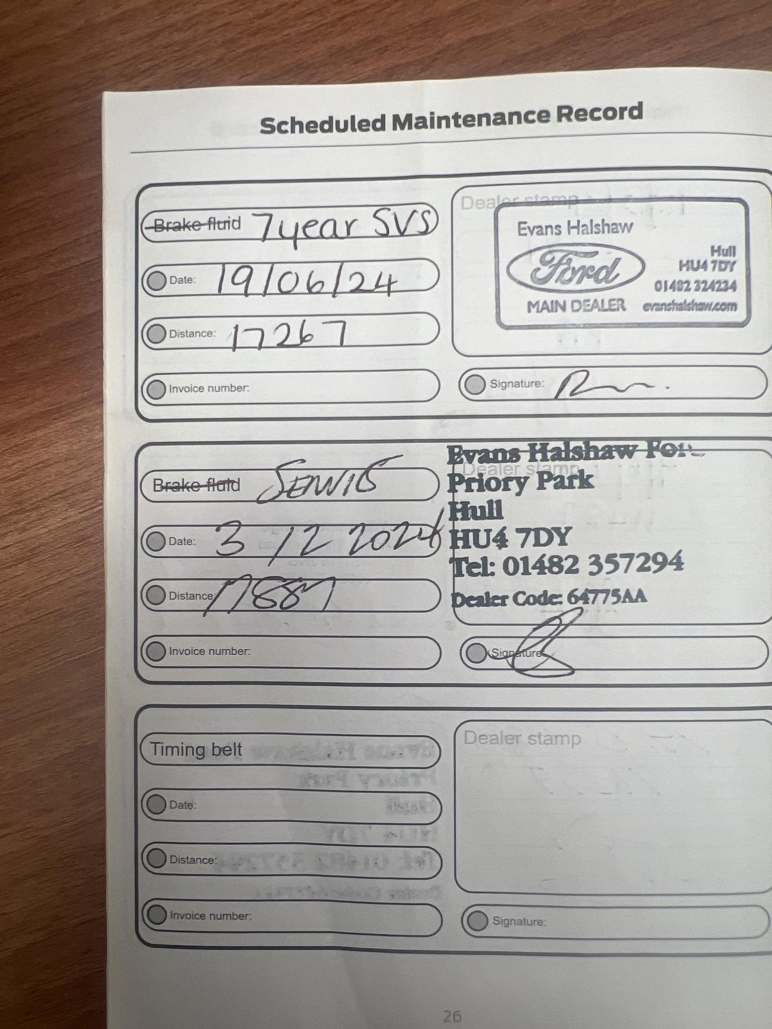 Scheduled Maintenance Record
Brake fluid 7 year SVS
Dealer stamp
Evans Halshaw
Ford
Hull
HU4 7DY
01482 324234
MAIN DEALER evanshalshaw.com
Date: 19/06/24
Distance: 17267
Invoice number:
Signature:
Brake fluid
Evans Halshaw For
Dealer stamp
Priory Park
Hull
HU4 7DY
Tel: 01482 357294
Dealer Code: 64775AA
Date: 3/12 2024
Distance: 17887
Invoice number:
Signature:
Timing belt
Dealer stamp
Date:
Distance:
Invoice number:
Signature:
26